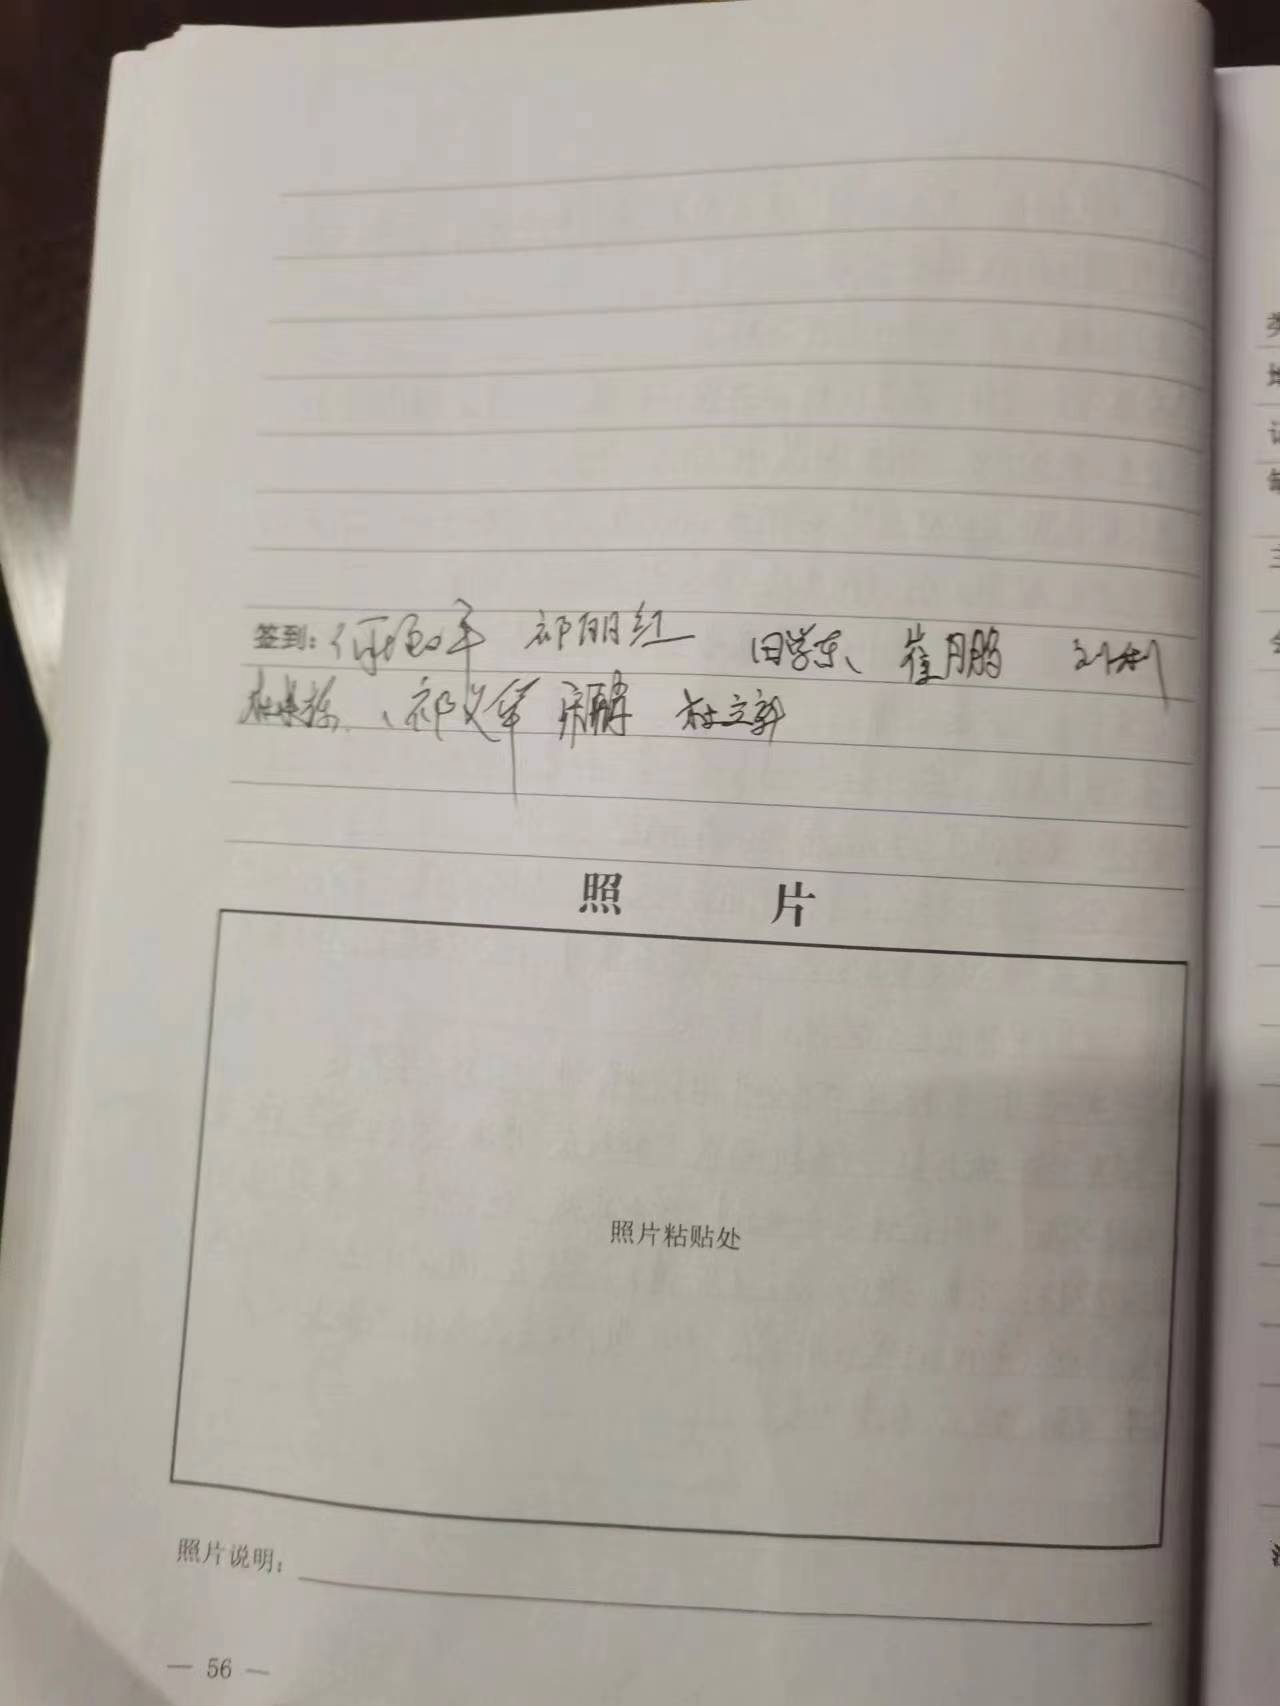 签到： 祁丽红 田学东、 崔月鹏 刘彬
、祁义军 宋鹏 杜立新
照 片
照片粘贴处
照片说明：
— 56 —